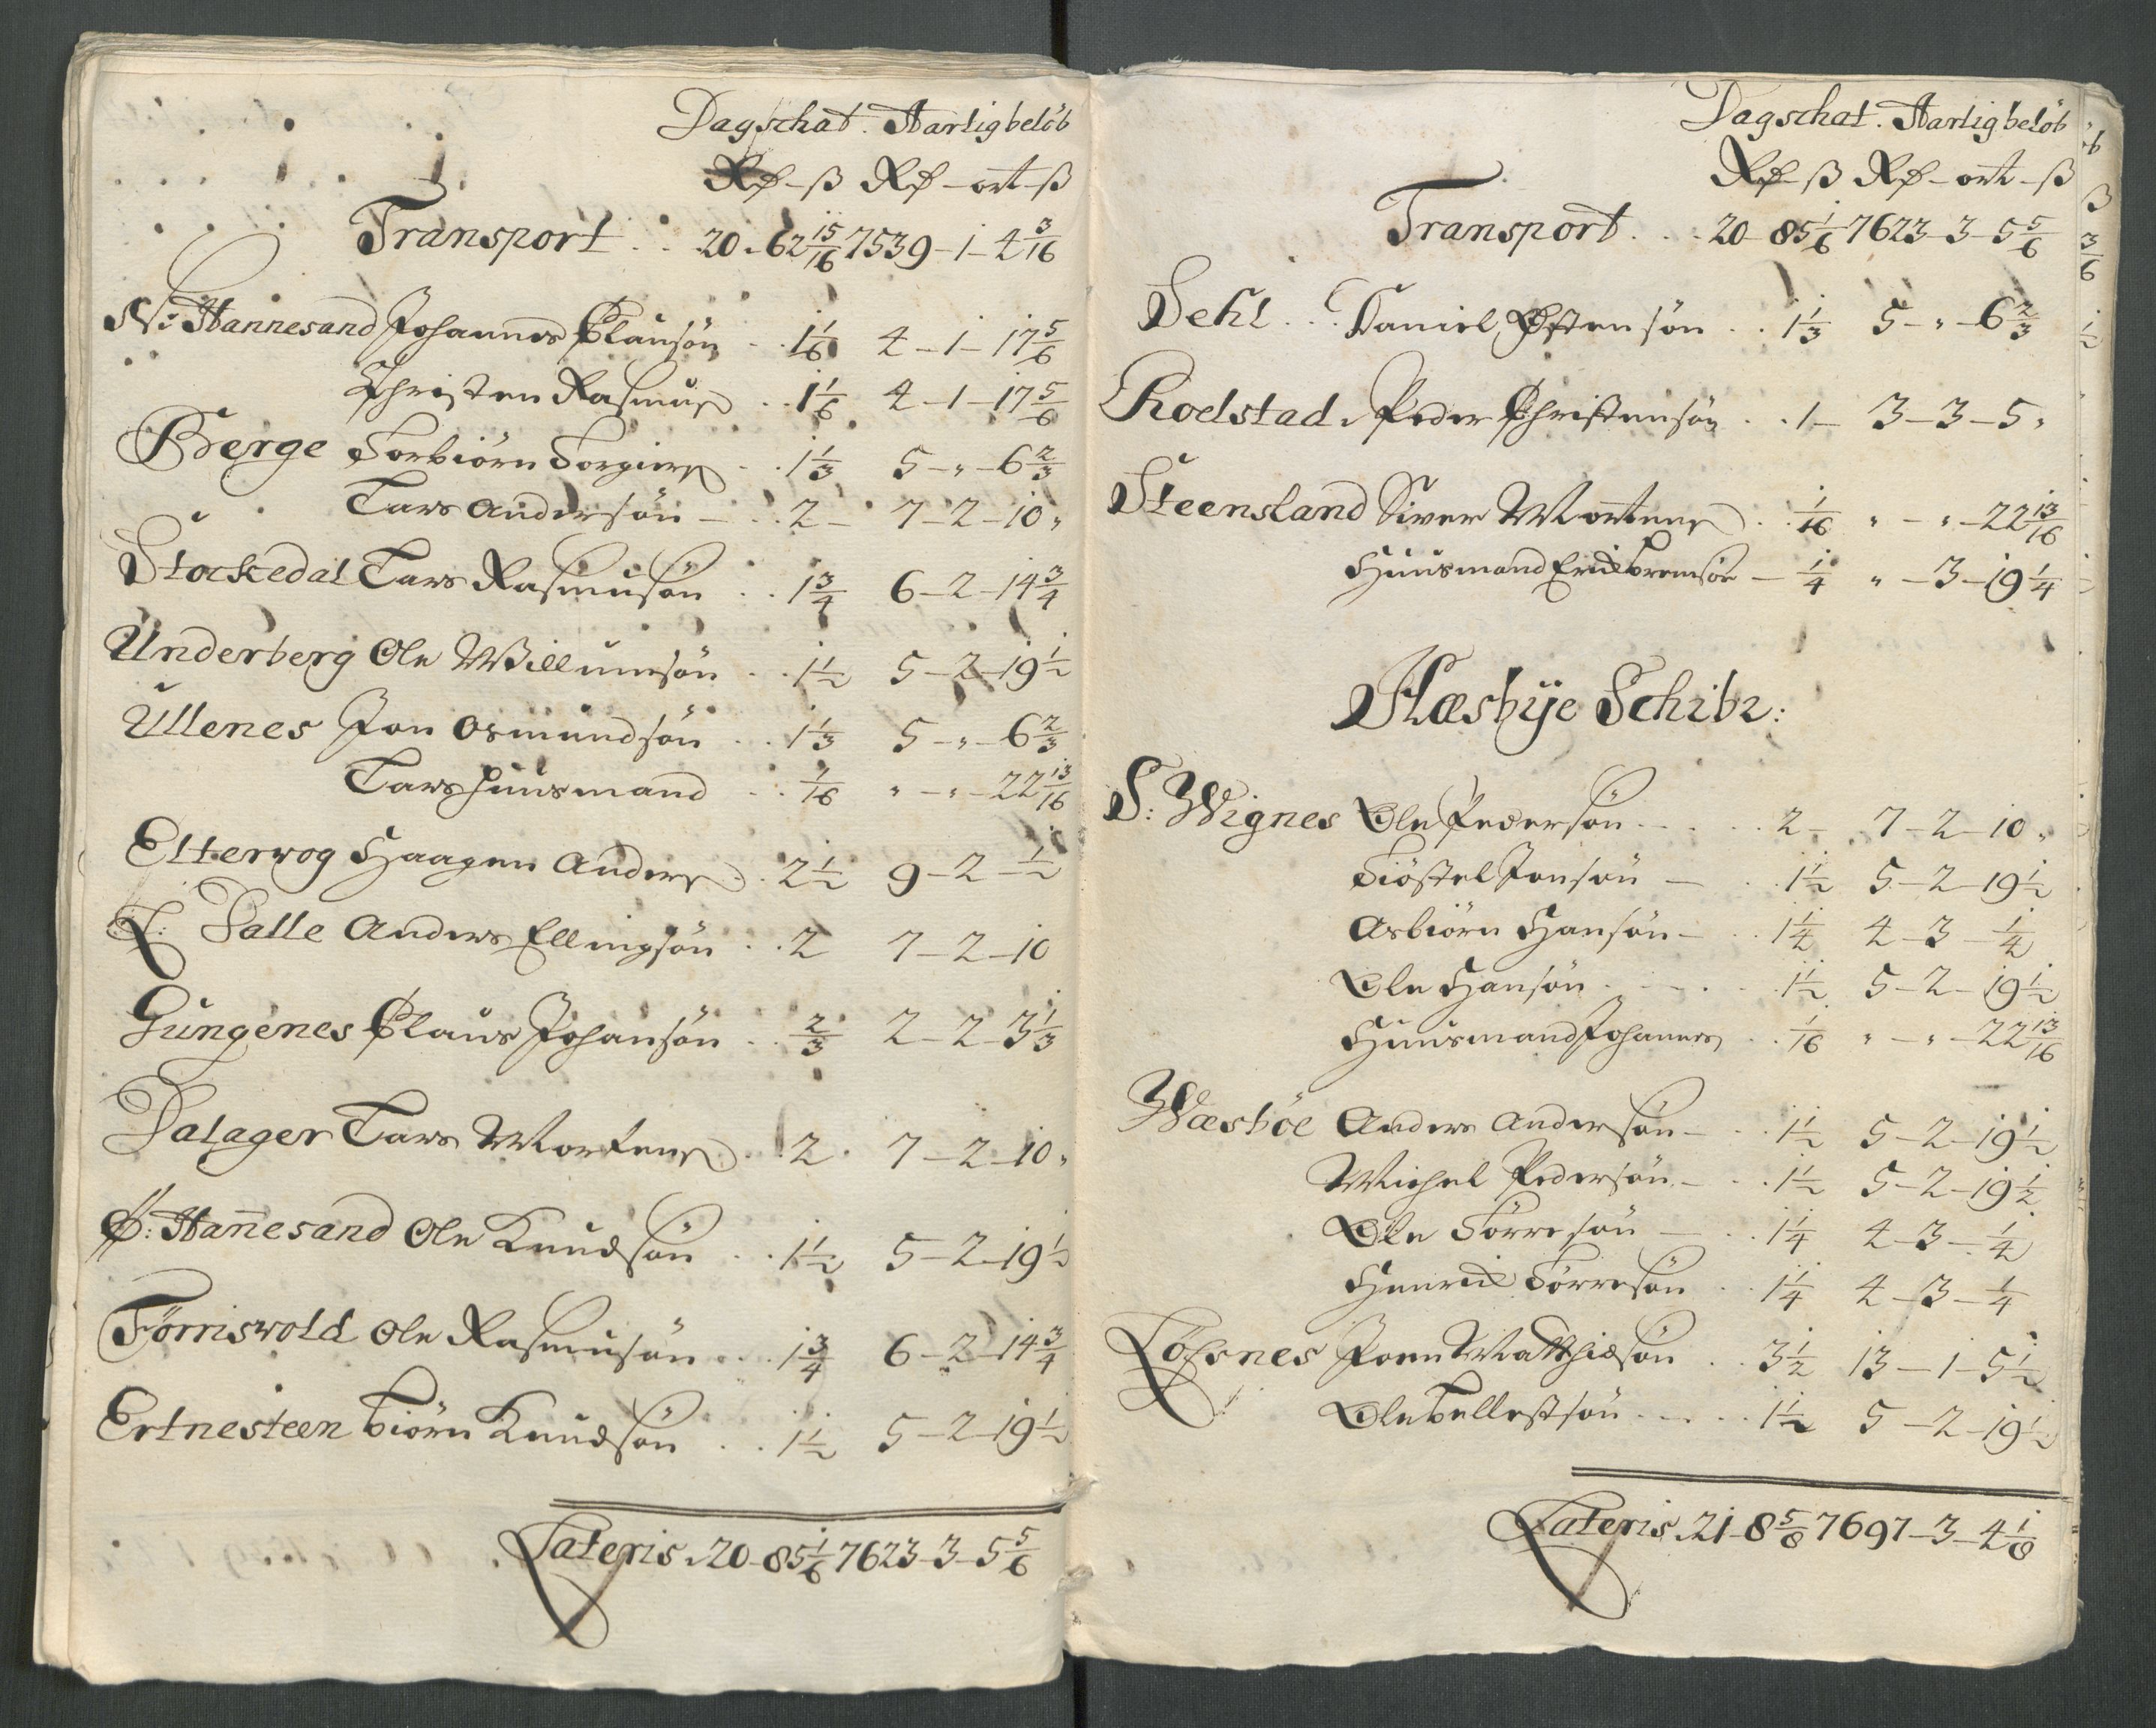 Dagschat. Aarlig belöb
Rd - ß Rd - ort - ß
Transport . . 20 - 62 15/16 7539 - 1 - 4 3/16
N: Hannesand Johannes Clausön . . 1 1/6 4 - 1 - 17 5/6
Christen Rasmus . . 1 1/6 4 - 1 - 17 5/6
Berge Torbiörn Torgiers . . 1 1/3 5 - " - 6 2/3
Lars Andersön - . . 2 - 7 - 2 - 10 "
Stockedal Lars Rasmusön . . 1 3/4 6 - 2 - 14 3/4
Underberg Ole Willumsön . . 1 1/2 5 - 2 - 19 1/2
Ullenes Jon Osmundsön . . 1 1/3 5 - " - 6 2/3
Lars Huusmand . . 1/16 " - " - 22 13/16
Etterwog Haagen Anders . . 2 1/2 9 - 2 - 1/2
L: Salle Anders Ellingsön . . 2 7 - 2 - 10
Gungenes Claus Johansön . . 2/3 2 - 2 - 3 1/3
Dalager Lars Mortens . . 2 . 7 - 2 - 10 "
Ø: Han̄esand Ole Knudsön . . 1 1/2 5 - 2 - 19 1/2
Förriswold Ole Rasmusön . . 1 3/4 6 - 2 - 14 3/4
Ertnesteen Biörn Knudsön . . 1 1/2 5 - 2 - 19 1/2
Lateris . 20 - 85 1/6 7623 - 3 - 5 5/6
Dagschat. Aarlig belöb
Rd - ß Rd - ort - ß
Transport . . . 20 - 85 1/6 7623 - 3 - 5 5/6
Sehl . . . Daniel Østensön . . 1 1/3 5 - " - 6 2/3
Roelstad . Peder Christensön . . 1 - 3 - 3 - 5 "
Steensland Siver Mortens . . 1/16 " - " - 22 13/16
Huusmand Erich - 1/4 " - 3 - 19 1/4
Næsbÿe Schibr:
S: Wignes Ole Pedersön . . . . 2 - 7 - 2 - 10 "
Kiöstel Jonsön - . . 1 1/2 5 - 2 - 19 1/2
Asbiörn Hansön - . . 1 1/4 4 - 3 - 1/4
Ole Hansön . . . . 1 1/2 5 - 2 - 19 1/2
Huusmand Johannes . . 1/16 " - " - 22 13/16
Wæsböe Anders Andersön - . . 1 1/2 5 - 2 - 19 1/2
Michel Pedersön - . . 1 1/2 5 - 2 - 19 1/2
Ole Törresön - . . 1 1/4 4 - 3 - 1/4
Henrich Törresön . . 1 1/4 4 - 3 - 1/4
Löfsnes Joen Matthiæsön . . 3 1/2 13 - 1 - 5 1/2
Ole Tellefsön . . . . 1 1/2 5 - 2 - 19 1/2
Lateris . 21 - 8 5/8 7697 - 3 - 4 1/8